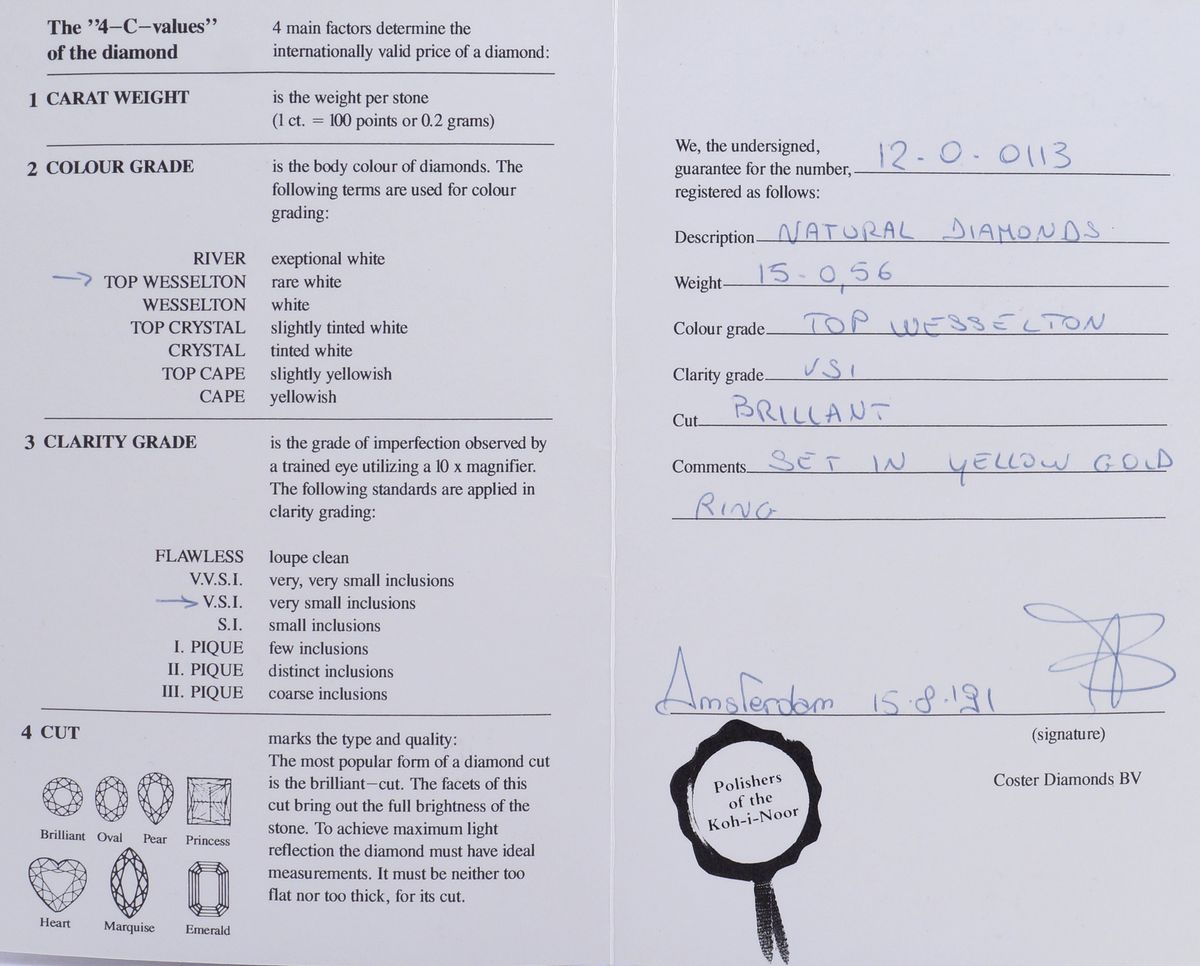 The ”4–C–values”
of the diamond
4 main factors determine the
internationally valid price of a diamond:
1 CARAT WEIGHT
is the weight per stone
(1 ct. = 100 points or 0.2 grams)
2 COLOUR GRADE
is the body colour of diamonds. The
following terms are used for colour
grading:
RIVER exeptional white
TOP WESSELTON rare white
WESSELTON white
TOP CRYSTAL slightly tinted white
CRYSTAL tinted white
TOP CAPE slightly yellowish
CAPE yellowish
3 CLARITY GRADE
is the grade of imperfection observed by
a trained eye utilizing a 10 x magnifier.
The following standards are applied in
clarity grading:
FLAWLESS loupe clean
V.V.S.I. very, very small inclusions
V.S.I. very small inclusions
S.I. small inclusions
I. PIQUE few inclusions
II. PIQUE distinct inclusions
III. PIQUE coarse inclusions
4 CUT
marks the type and quality:
The most popular form of a diamond cut
is the brilliant–cut. The facets of this
cut bring out the full brightness of the
stone. To achieve maximum light
reflection the diamond must have ideal
measurements. It must be neither too
flat nor too thick, for its cut.
Brilliant Oval Pear Princess
Heart Marquise Emerald
We, the undersigned,
guarantee for the number, 12-0-0113
registered as follows:
Description NATURAL DIAMONDS
Weight 15-0,56
Colour grade TOP WESSELTON
Clarity grade VSI
Cut BRILLANT
Comments SET IN YELLOW GOLD
RING
Amsterdam 15.8.'91
(signature)
Coster Diamonds BV
Polishers
of the
Koh-i-Noor